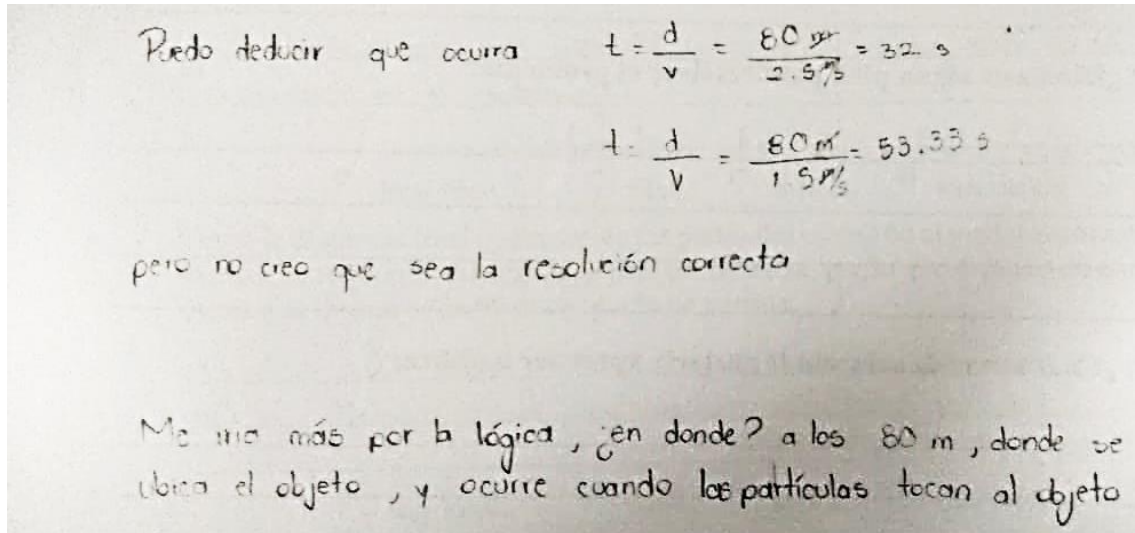 Puedo deducir que ocurra t = d/v = 80 m / 2.5 m/s = 32. s
t = d/v = 80 m / 1.5 m/s = 53.33 s
pero no creo que sea la resolución correcta
Me iria más por la lógica, ¿en donde? a los 80 m, donde se
ubica el objeto, y ocurre cuando las partículas tocan al objeto